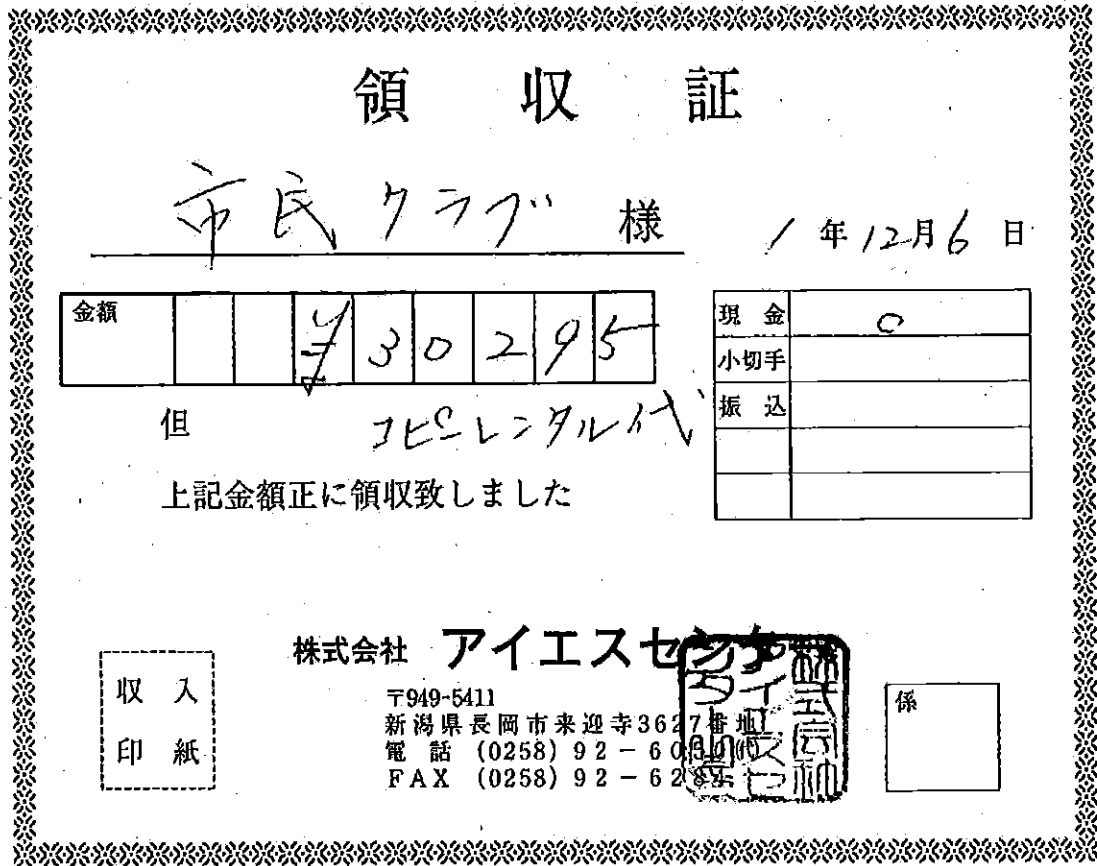 領収証
市民クラブ 様
1年12月6日
金額 ¥30295
現金 ○
小切手
振込
但 コピーレンタル代
上記金額正に領収致しました
株式会社 アイエスセンター
〒949-5411
新潟県長岡市来迎寺3627番地
電話 (0258) 92-60
FAX (0258) 92-62
収入
印紙
係